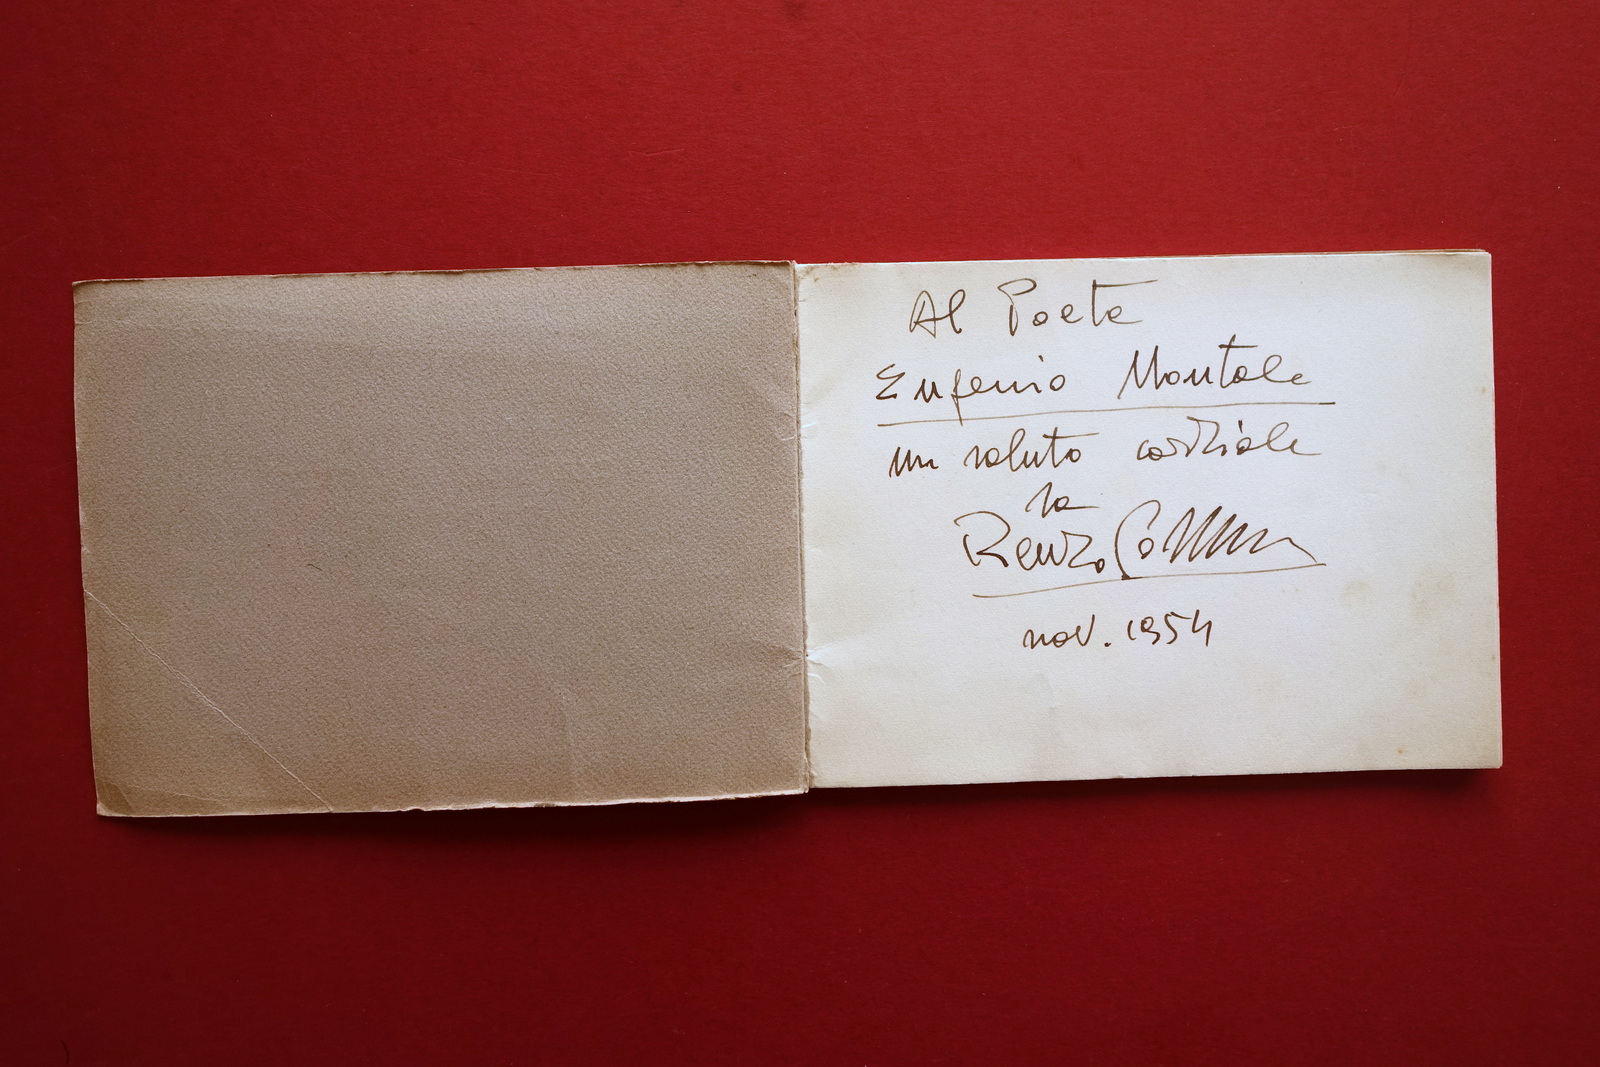 Al Poeta
Eugenio Montale
un saluto cordiale
da
Renzo
nov. 1954